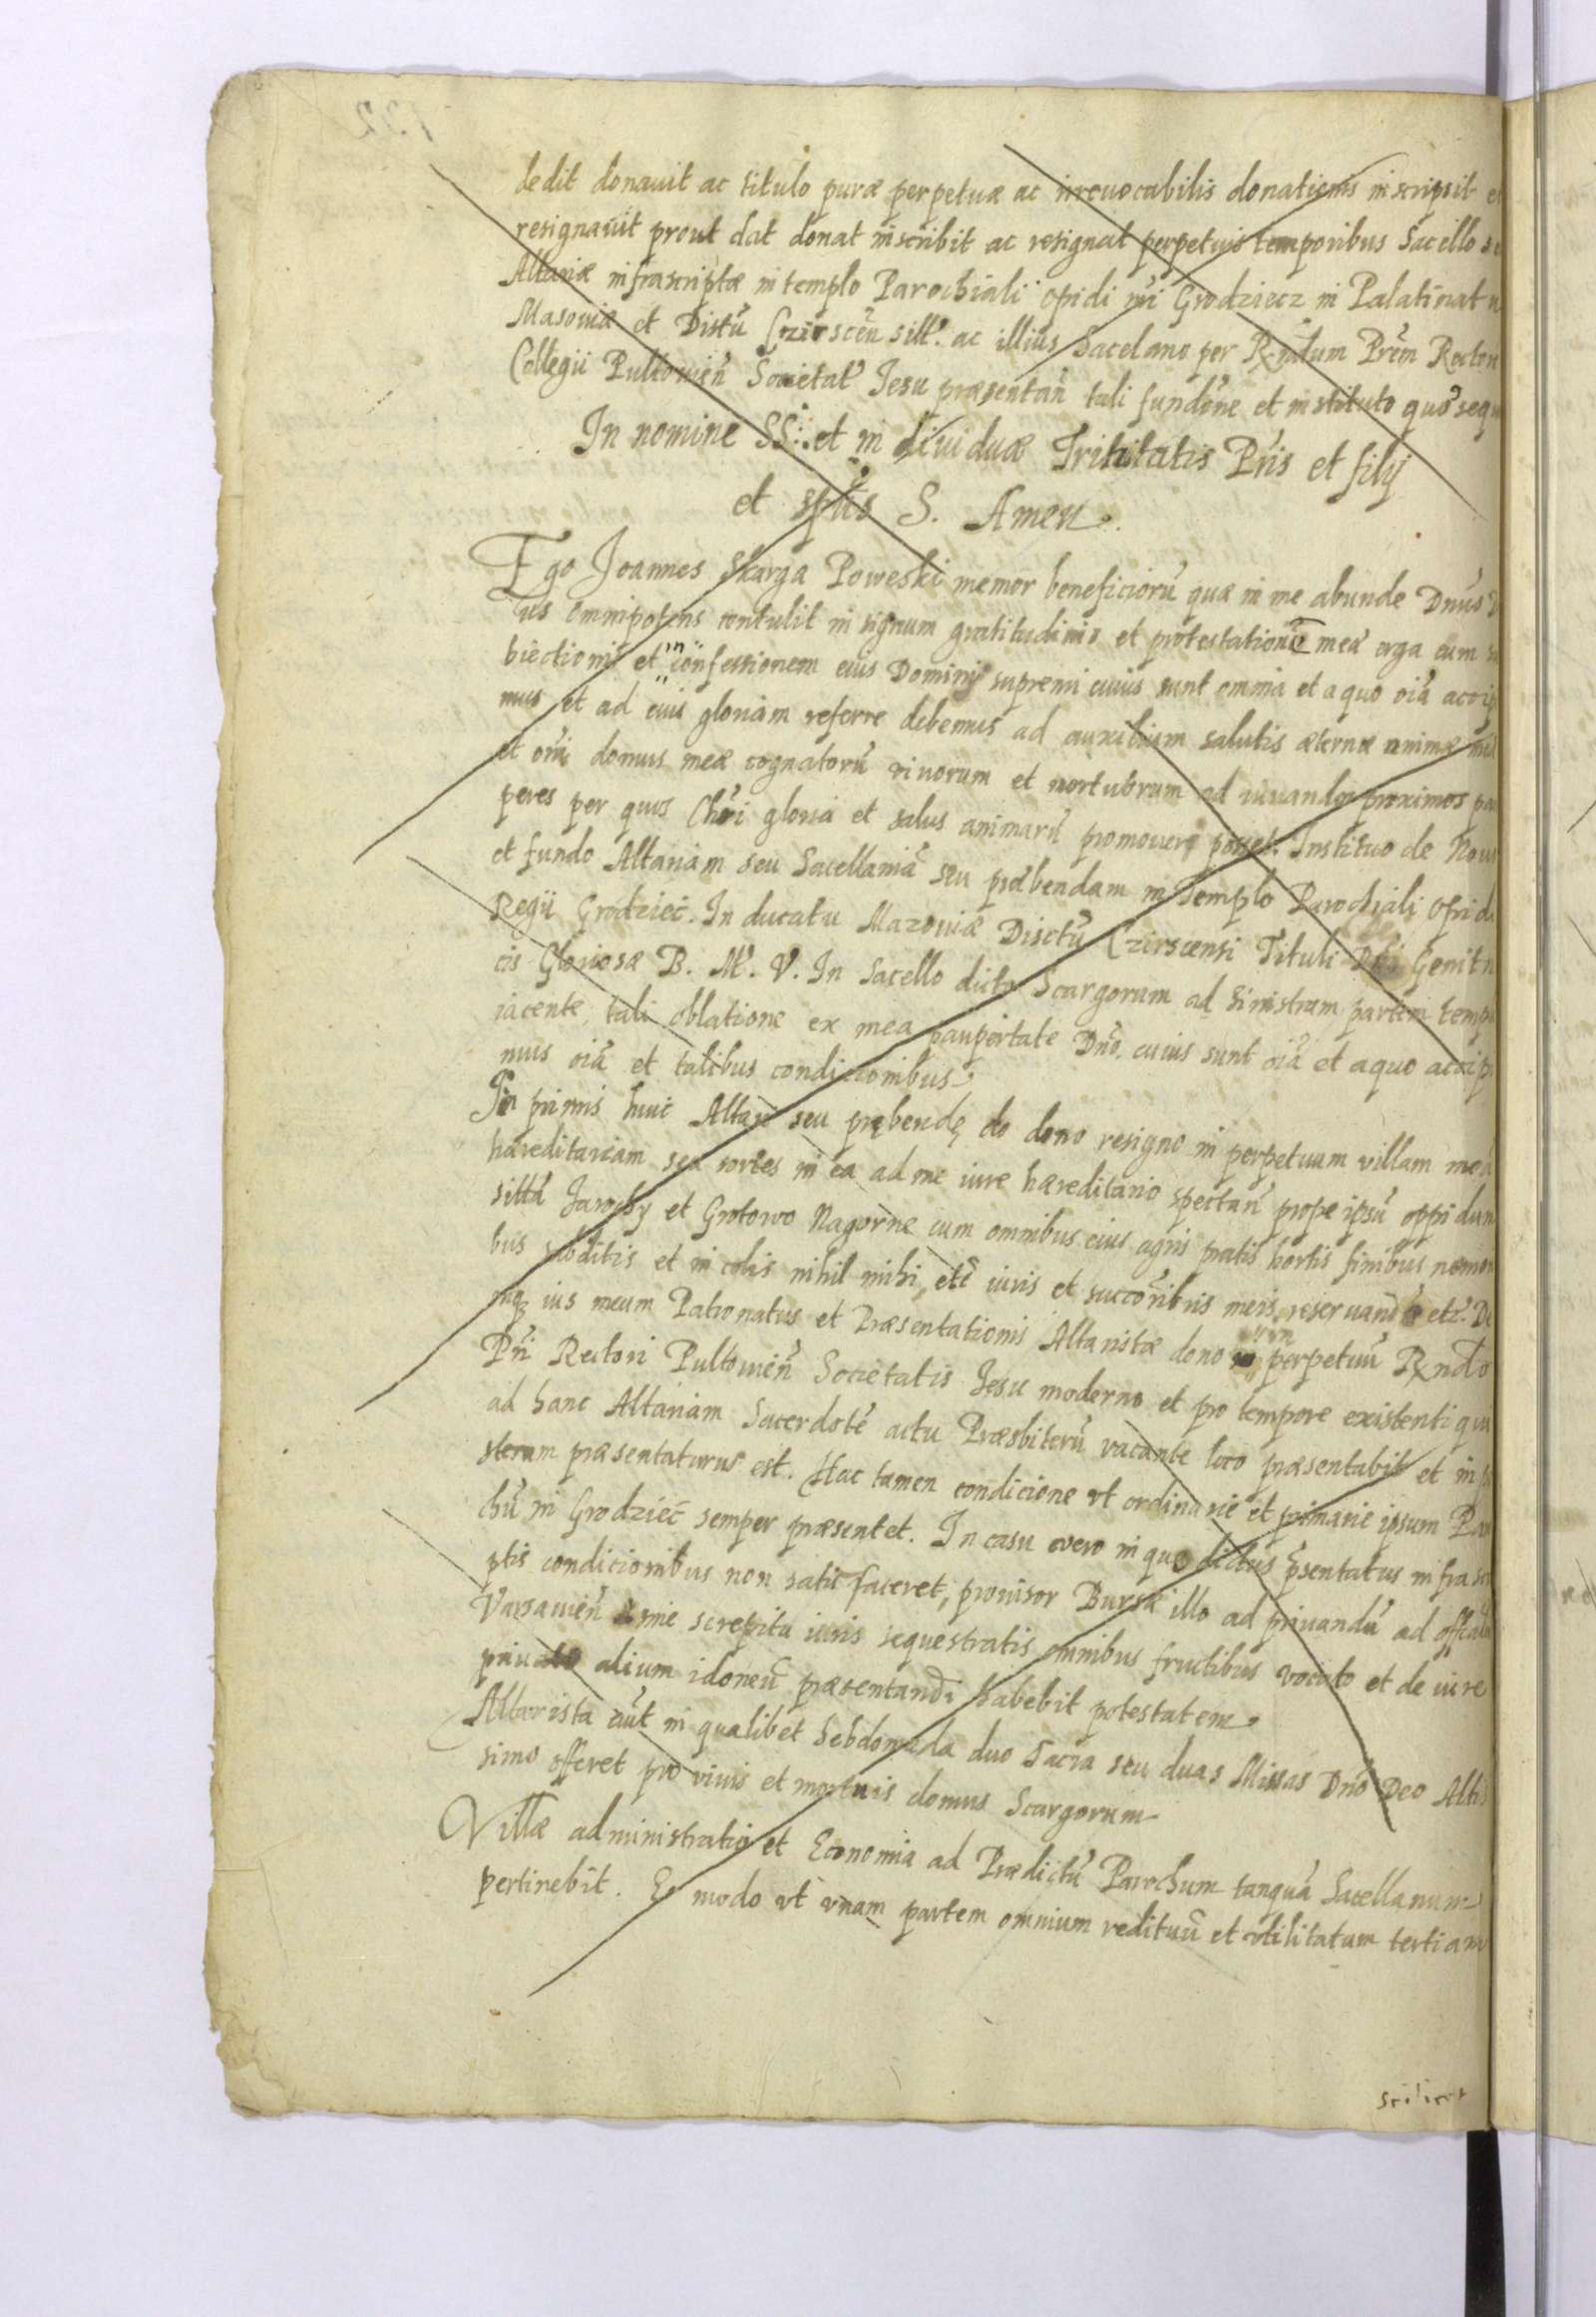 dedit donauit ac titulo puræ perpetuæ ac irreuocabilis donationis inscripsit et
resignauit prout dat donat inscribit ac resignat perpetuis temporibus Sacello
Altariæ infrascriptæ in templo Parochiali opidi Grodziecz in Palatinat
Masoviæ et Distũ Czirscẽn sitt. ac illius Sacelano per Rndum Prẽm Rector
Collegii Pultowiẽn Societat Iesu præsentañ tali fundõne et instituto quo sequ
In nomine SS: et indiuiduæ Trinitatis Pris et filij
et sp̃us S. Amen.
Ego Joannes Skarga Poweski memor beneficiorũ quæ in me abunde Dnus D
us omnipotens contulit in signum gratitudinis et protestationẽ meã erga eum su
biectionis et in confessionem eius Dominij supremi cuius sunt omnia et a quo oiã accipi
mus et ad eius gloriam referre debemus ad auxilium salutis æternæ animæ
et oni domus meæ cognatorũ viuorum et mortuorum ad iuuandos proximos pau
peres per quos Chri gloria et salus animarũ promoueri posset. Instituo de Nouo
et fundo Altariam seu Sacellaniã seu præbendam in Templo Parochiali opid
Regii Grodziec. In ducatu Mazoviæ Disctũ Czirscensi Tituli Dei Genitri
cis Gloriosæ B. M. V. In Sacello dicto Scargorum ad sinistram partem templi
iacente, tali oblatione ex mea paupertate Dno, cuius sunt oiã et a quo accipi
mus oiã et talibus condicionibus
In primis huic Altari seu prębendę do dono resigno in perpetuum villam meã
hæreditariam seu sortes in ea ad me iure hæreditario spectañ prope ipsũ oppidum
sittã Jarochy et Grotowo Nagorne cum omnibus eius agris pratis hortis finibus nemor
bus subditis et incolis nihil mihi, etc iuris et succoribus meis reseruando etc. De
niqȝ ius meum Patronatus et Præsentationis Altaristæ dono in perpetuũ Rndo
Pri Rectori Pultowiẽn Societatis Iesu moderno et pro tempore existenti qui
ad hanc Altariam Sacerdotẽ actu Præsbiterũ vacante loco præsentabit et in po
sterum præsentaturus est. Hac tamen condicione vt ordinarie et primarie ipsum Paro
chũ in Grodziec semper præsentet. In casu vero in quo dictus p̃sentatus infrascri
ptis condicionibus non satis faceret, prouisor Bursæ illo ad priuandũ ad offical
Varsauieñ sine screpitu iuris sequestratis omnibus fructibus vocato et de iure
priuato alium idoneũ præsentandi habebit potestatem
Altarista aũt in qualibet hebdomada duo Sacra seu duas Missas Dno Deo Altis
simo offeret pro viuis et mortuis domus Scargorum
Villæ administratio et Economia ad Prædictũ Parochum tanquã Sacellanum
pertinebit. Eo modo vt vnam partem omnium redituũ et vtilitatum tertiam
scilicet